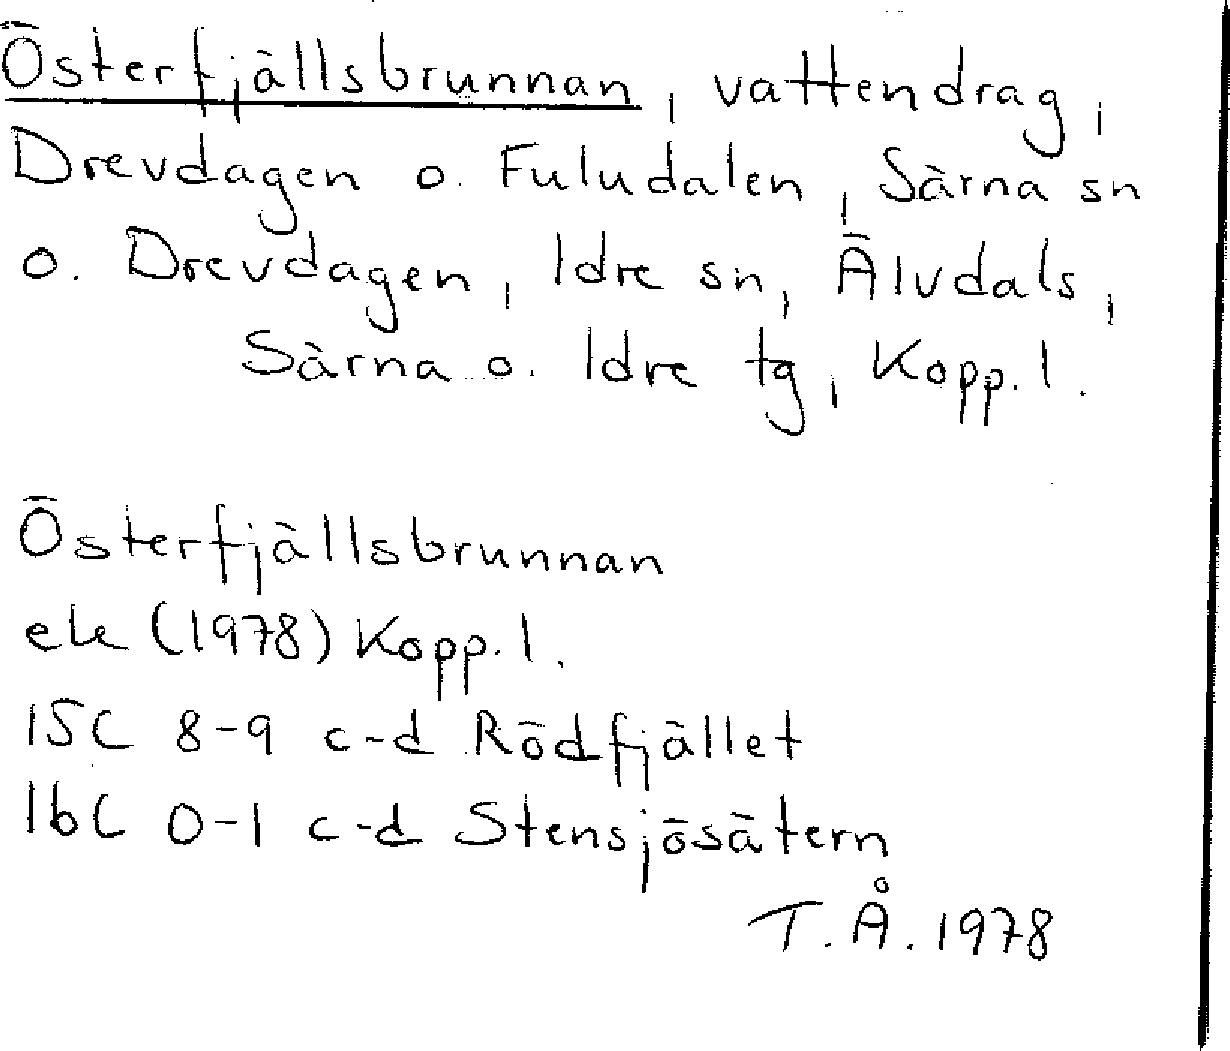 Österfjällsbrunnan, vattendrag,
Drevdagen o. Fuludalen, Särna sn
o. Drevdagen, Idre sn, Älvdals,
Särna o. Idre tg, Kopp. l.
Österfjällsbrunnan
ek (1978) Kopp. l.
15C 8-9 c-d Rödfjället
16C 0-1 c-d Stensjösätern
T. Å. 1978